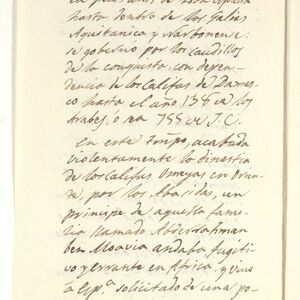 hasta dentro de las Galias
Aquitanica y Narbonen
se goberno por los caudillos
de la conquista, con depen-
dencia de los Califas de Damas-
co hasta el año 138 de los
Arabes, ó sea 755 de J.C.
En este tiempo, acabada
violentamente la dinastia
de los Califas Omeyas en Orien-
te, por los Abasidas, un
principe de aquella fami-
lia llamado Abderrahman
ben Moavia andaba fugiti-
vo y errante en Africa, y vino
a Espª solicitado de una po-